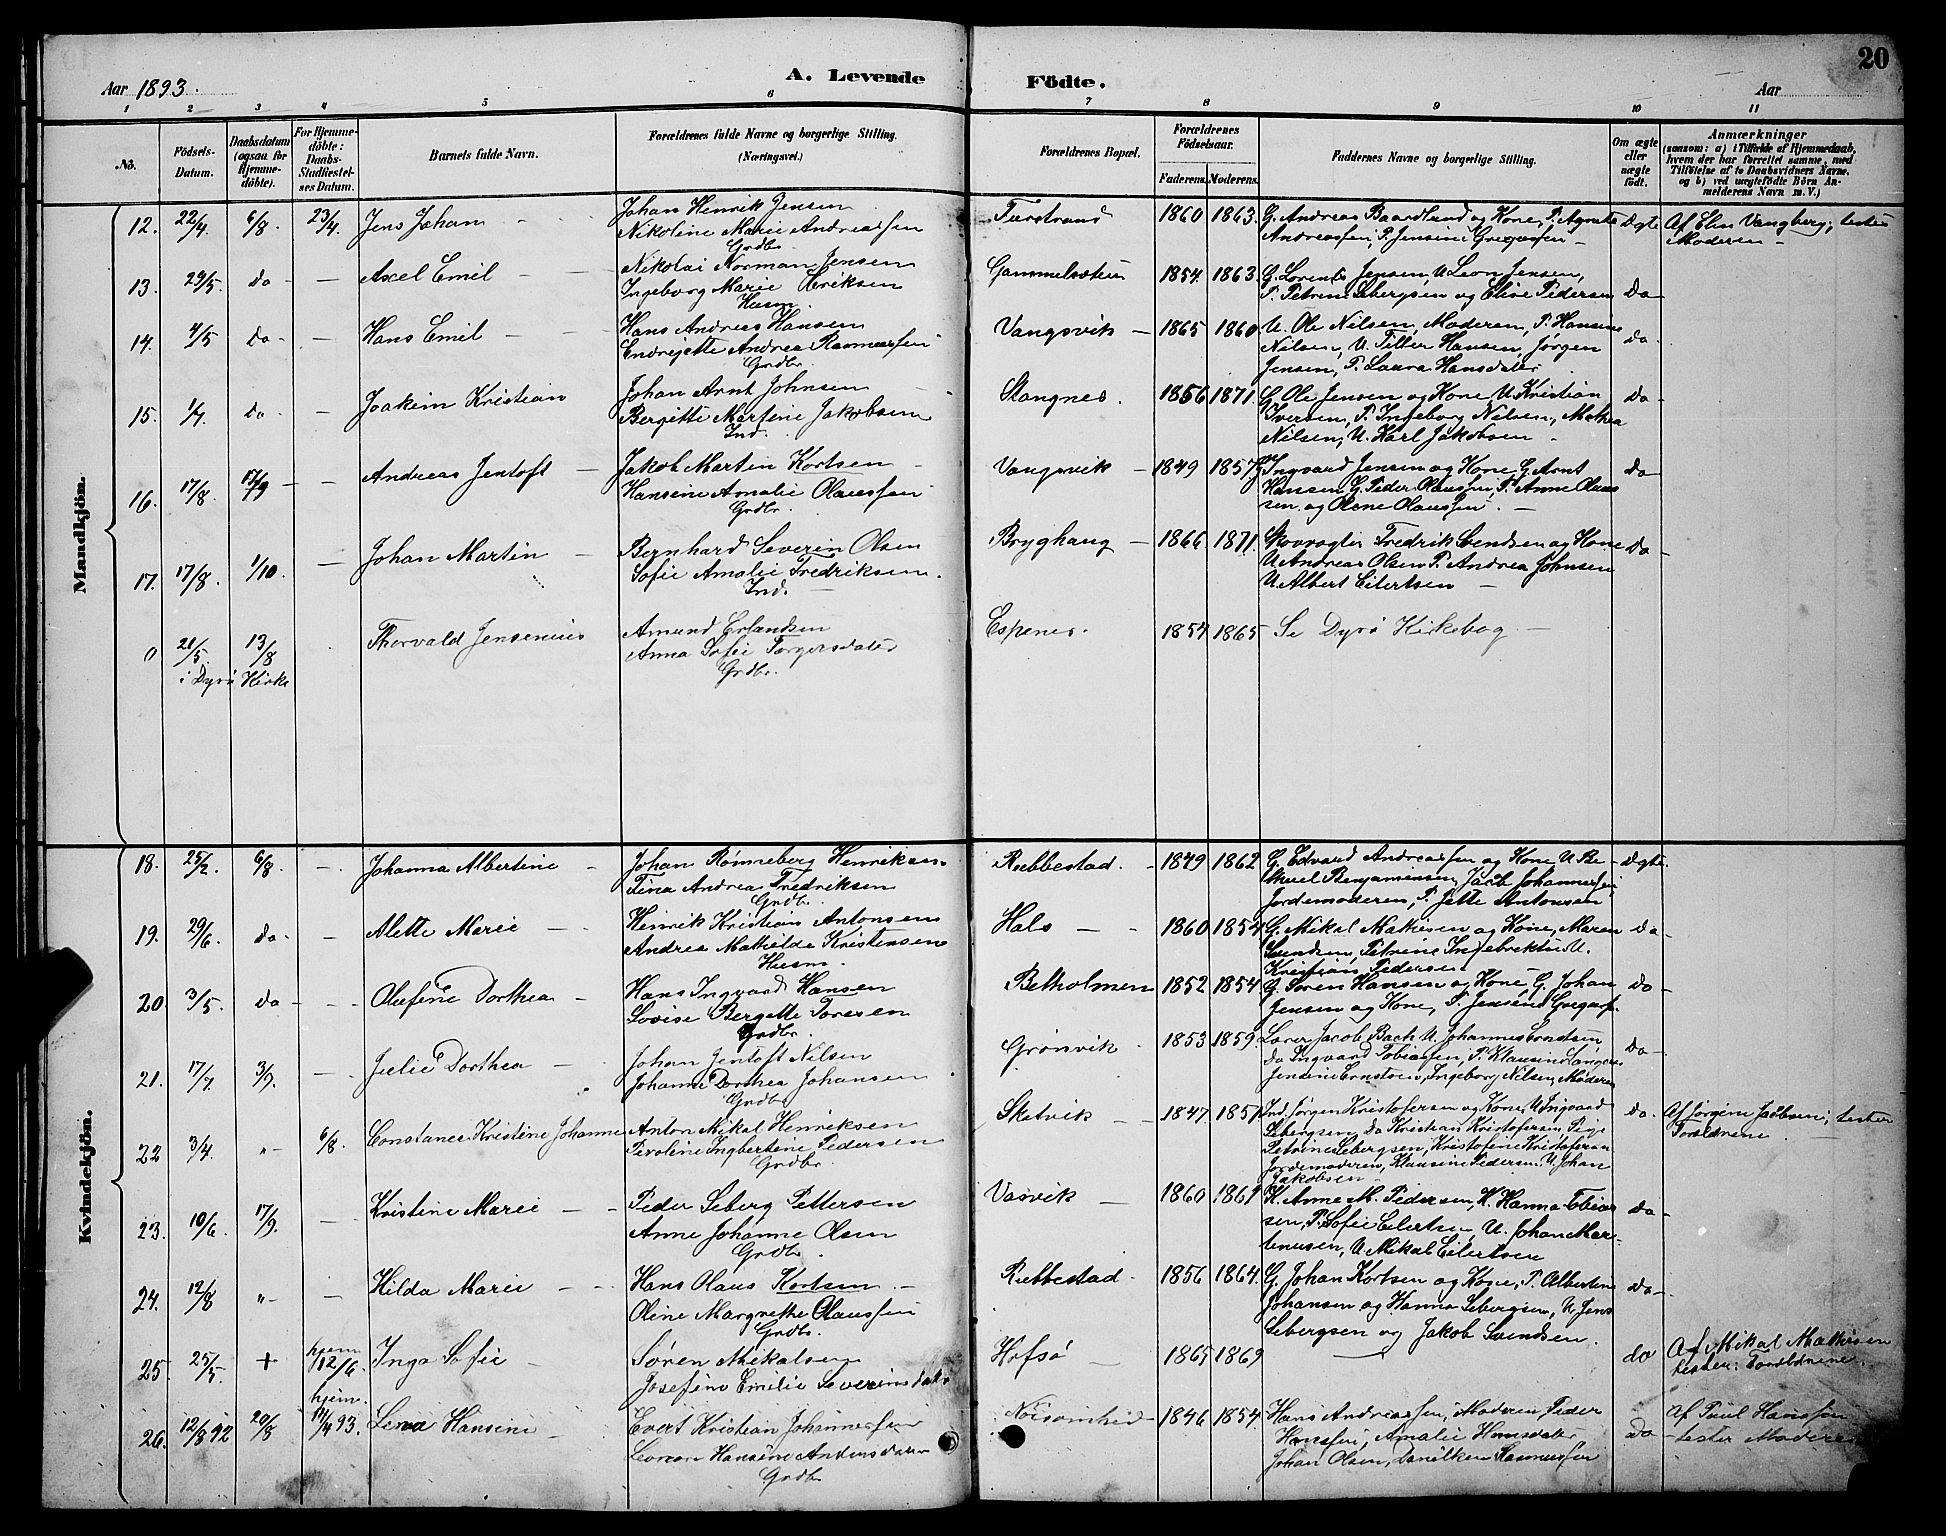 Aar 1893.
A. Levende Födte.
20
Aar
1 2 3 4 5 6 7 8 9 10 11
No.
Födsels-Datum.
Daabsdatum (ogsaa for Hjemmedöbte).
For Hjemmedöbte: Daabs-Stadfæstelses Datum.
Barnets fulde Navn.
Forældrenes fulde Navne og borgerlige Stilling. (Næringsvei.)
Forældrenes Bopæl.
Forældrenes Födselsaar.
Faderens. Moderens.
Faddernes Navne og borgerlige Stilling.
Om ægte eller uægte födt.
Anmærkninger
(saasom: a) i Tilfælde af Hjemmedaab, hvem der har forrettet samme, med Tilföielse af to Daabsvidners Navne, og b) ved uægtefödte Börn Anmelderens Navn m. V.)
Mandkjön.
12. 22/4. 6/8 23/4. Jens Johan
Johan Henrik Jensen
Nikoline Marie Andreassen
Grdbr.
1860 1863. G. Andreas Baardlund og Kone, P. Agnete
Andreassen, P. Jensine Gregersen
Ægte
Af Elen Vangberg; tester
Moderen
13. 29/5. do Axel Emil
Nikolai Norman Jensen
Ingeborg Marie Eriksen
Husm.
Gammelsæteren 1854. 1863. G. Lorents Jensen, U. Leon Jensen,
P. Petrine Sebergsen og Elise Pedersen do
14. 4/5 do Hans Emil
Hans Andreas Hansen
Endrejette Andrea Rasmussen
Grdbr.
Vangsvik 1865 1860 U. Ole Nilsen, Moderen, P. Hansine
Nilsen, U. Peter Hansen, Jørgen
Jensen, P. Laura Hansdater do
15. 1/7. do Joakim Kristian
Johan Arnt Johnsen
Bergitte Martine Jakobsen
Ind.
Stangnes. 1856 1871. G. Ole Jensen og Kone U. Kristian
Iversen, P. Ingeborg Nilsen, Mathea
Nilsen, U. Karl Jakobsen do
16. 17/8. 17/9 Andreas Jentoft
Jakob Martin Kortsen
Hansine Amalie Olaussen
Grdbr.
Vangsvik 1849 1857. Ingvard Jensen og Kone, G. Arnt
Hansen G. Peder Olaussen, P. Anne Olaus
sen og Olene Olaussen. do
17. 17/8. 1/10. Johan Martin
Bernhard Severin Olsen
Sofie Amalie Fredriksen.
Ind.
Bryghaug 1866 1871. Skovvogter Fredrik Svendsen og Kone
U. Andreas Olsen P. Andrea Johnsen
U. Albert Eilertsen do
0 21/5. 13/8 Thorvald Jensenius
i Dyrø Kirke
Amund Erlandsen
Anna Sofie Torgersdater
Grdbr.
Espenes. 1854 1865 Se Dyrø Kirkebog
Kvindekjön.
18. 25/2. 6/8. Johanna Albertine
Johan Rønneberg Henriksen.
Tina Andrea Fredriksen
Grdbr.
Rubbestad. 1849 1862 G. Edvard Andreassen og Kone U. Be-
Benjaminsen, Jacob Johannessen,
Jordemoderen, P. Jette Antonsen
Ægte
19. 29/6. do Alette Marie
Henrik Kristian Antonsen
Andrea Mathilde Kristensen
Husm.
Hals 1860 1854 G. Mikal Mathisen og Kone, Maren
Svendsen, Petrine Ingebrektsen U.
Kristian Pedersen do
20. 3/5. do Olufine Dorthea
Hans Ingvard Hansen
Lovise Bergette Toresen
Grdbr.
Betholmen 1852 1854 G. Søren Hansen og Kone, G. Johan
Jensen og Kone, P. Jensine Gregers. do
21. 17/7 3/9. Julie Dorthea
Johan Jentoft Nilsen
Johanne Dorthea Johansen
Grdbr.
Grønvik 1853 1859. Lærer Jacob Bach U. Johannes
do Ingvard Tobiassen, P. Klausine
Jensine Ernstsen, Ingeborg Nilsen, Moderen do
22 3/4. "- 6/8. Constance Kristine Johanne
Anton Mikal Henriksen
Pevoline Ingbertine Pedersen
Grdbr.
Skatvik 1847. 1851. Ind. Jørgen Kristofersen og Kone, U. Ingvard
Sebergsen, do Kristian Kristofersen Pige
Petrine Sebergsen, Kristofine Kristofersen
Jordemoderen, Klausine Pedersen. U. Johan
Jakobsen do.
Af Jørgine Jacobsen; tester
Forældrene
23. 10/6. 17/9. Kristine Marie
Peder Seberg Pettersen
Anne Johanne Olsen
Grdbr.
Vasvik 1860 1861 K. Anne M. Pedersen, K. Hanna Tobias
sen, P. Sofie Eilertsen, U. Johan Mar-
tinusen, U. Mikal Eilertsen do
24. 12/8 "- Hilda Marie
Hans Olaus Kortsen
Oline Margrethe Olaussen
Grdbr.
Rubbestad. 1856 1864. G. Johan Kortsen og Kone, P. Albertine
Johansen og Hanna Sebergsen, U. Jens
Sebergsen og Jakob Svendsen. do
25. 25/5. + hjem 12/6. Inga Sofie
Søren Mikalsen
Josefine Emilie Severinsdater
Hofsø 1865 1869 do
Af Mikal Mathisen
tester: Forældrene.
26. 12/8 92 20/8 hjem. 14/4 93. Lena Hansine
Evert Kristian Johannessen
Leonore Hansine Andersdater
Grdbr
Nøisomhed 1846 1854. Hans Andreassen, Moderen, Peder
Hanssen, Amalie Hansdater
Johan Olsen, Rasmussen do
Af Paul Hanssen
tester Moderen